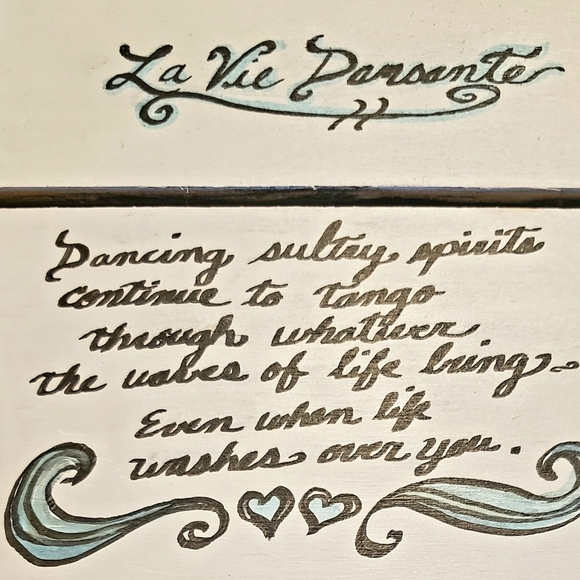 La Vie Dansante
Dancing sultry spirits
continue to tango
through whatever
the waves of life bring
Even when life
washes over you.